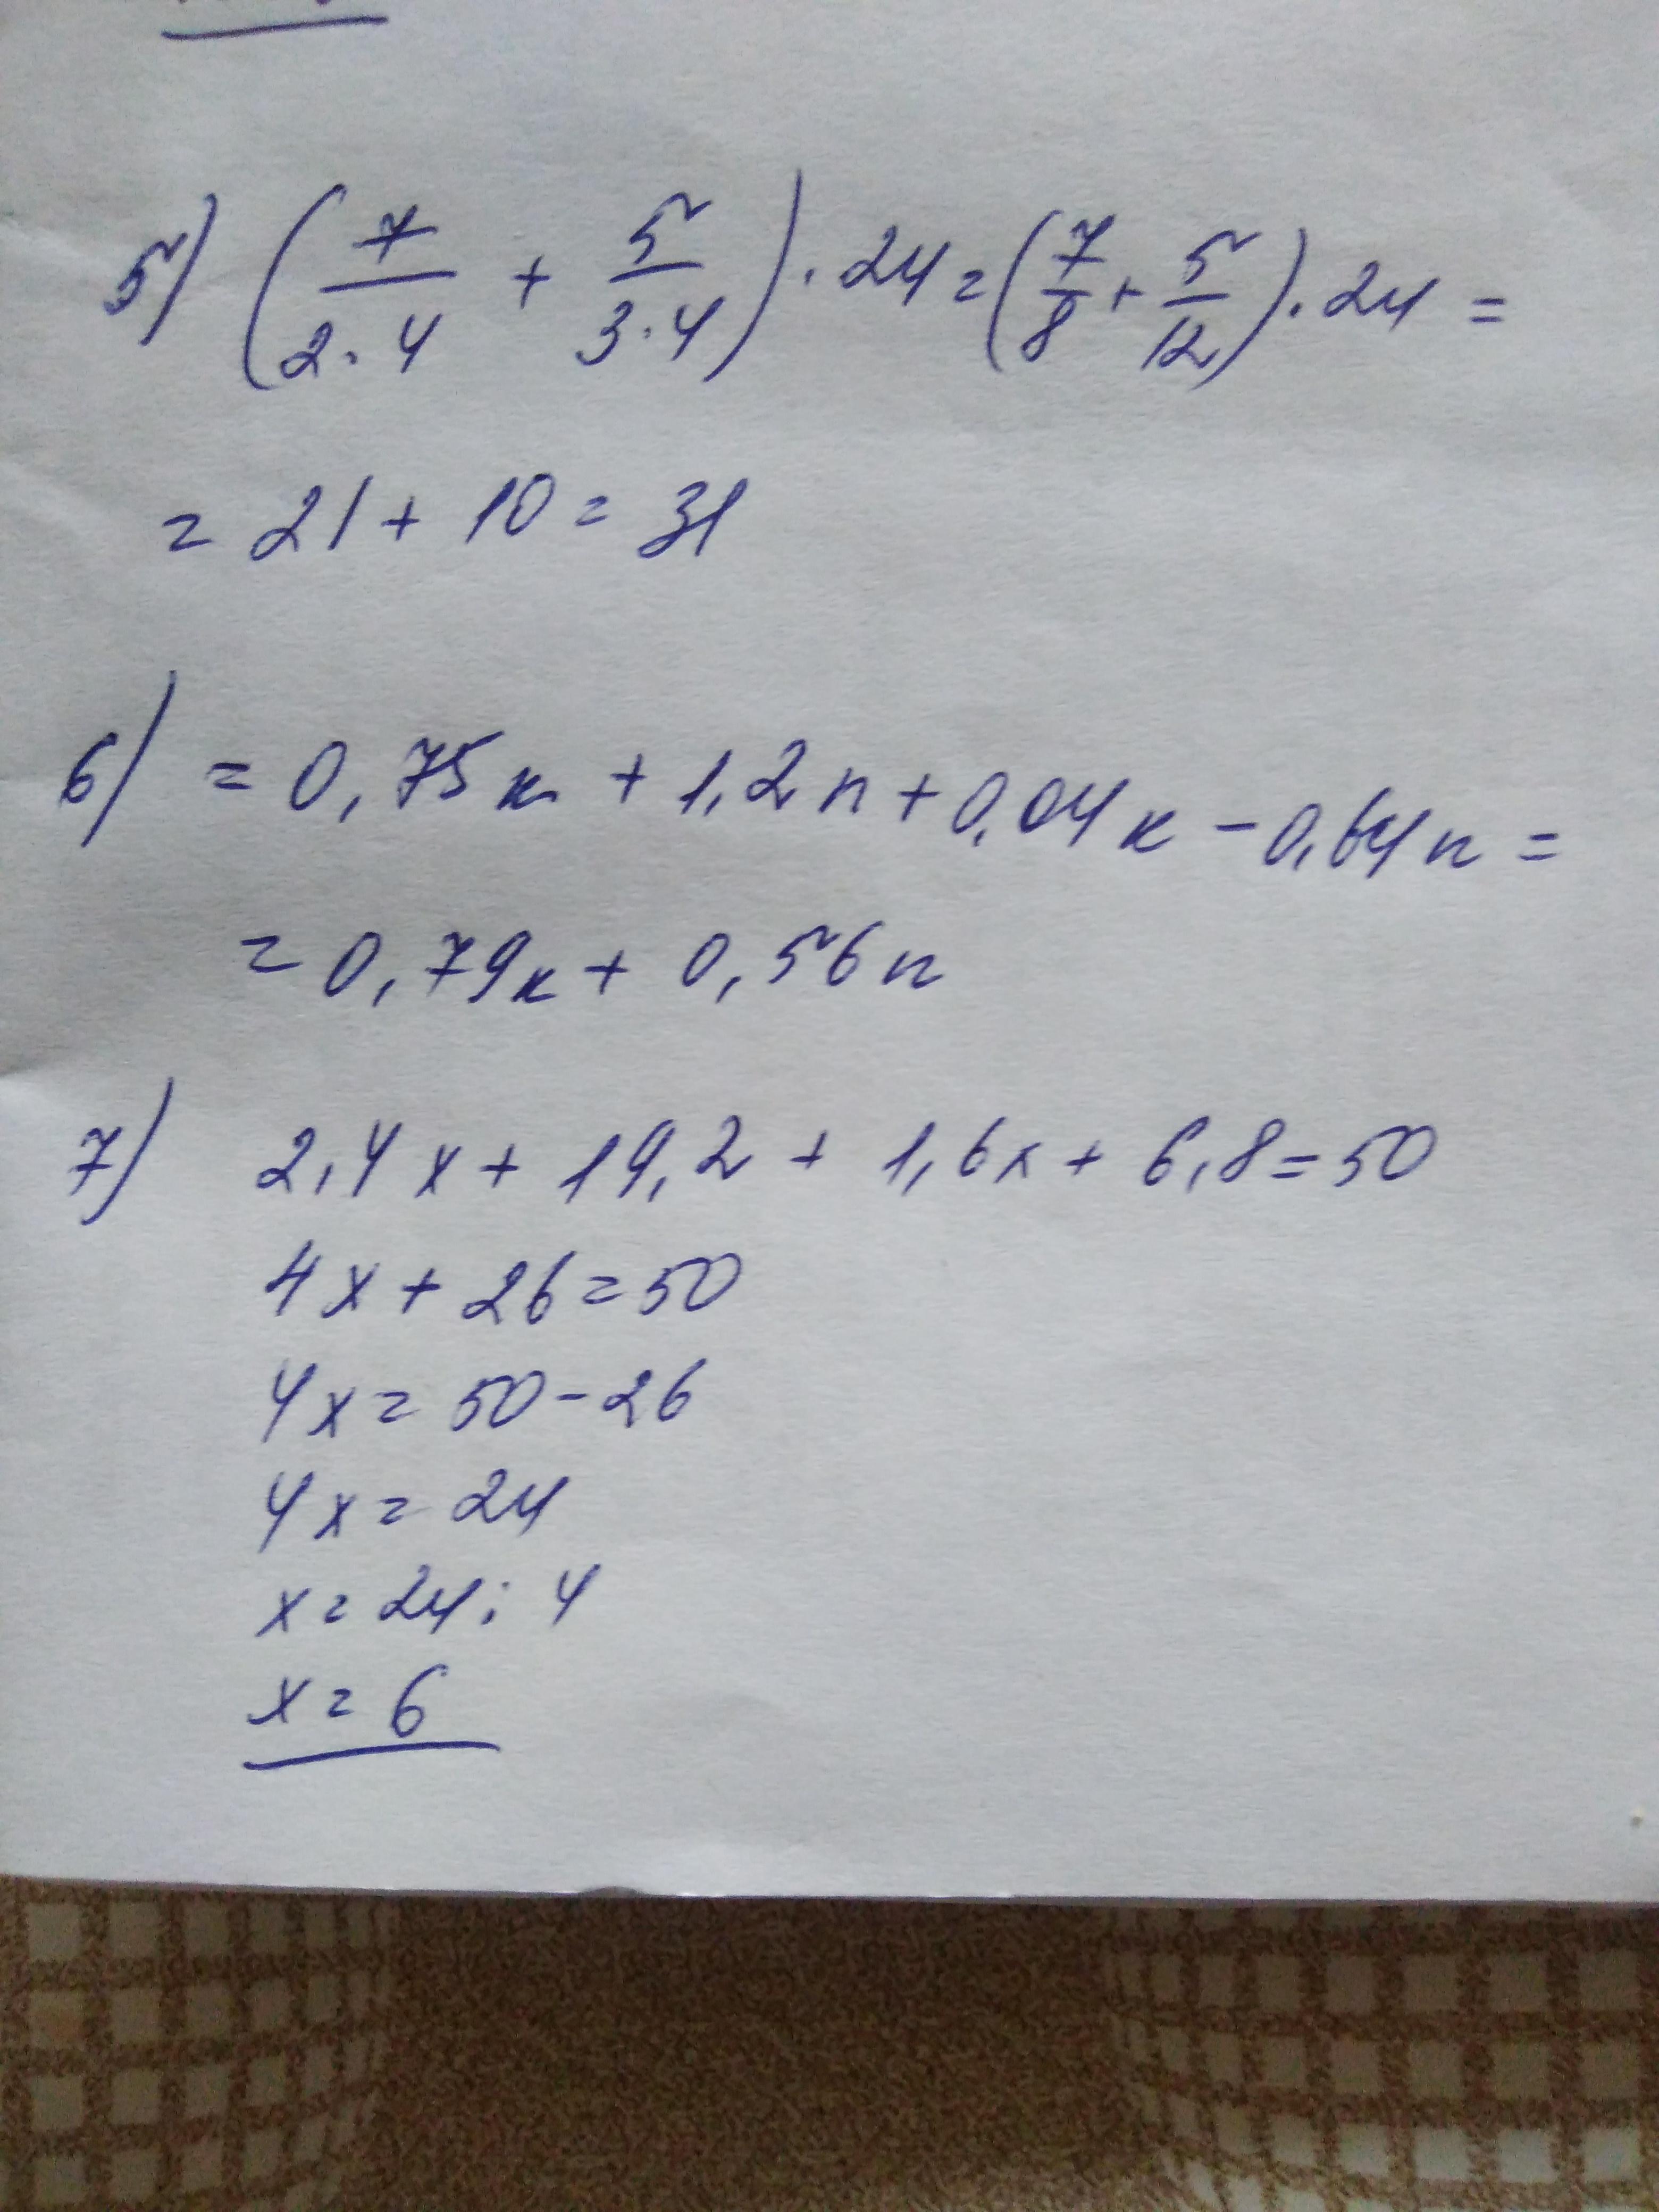 5) (7/(2·4) + 5/(3·4)) · 24 = (7/8 + 5/12) · 24 =
= 21 + 10 = 31
6) = 0,75к + 1,2n + 0,04к - 0,64n =
= 0,79к + 0,56n
7) 2,4x + 19,2 + 1,6x + 6,8 = 50
4x + 26 = 50
4x = 50 - 26
4x = 24
x = 24 : 4
x = 6